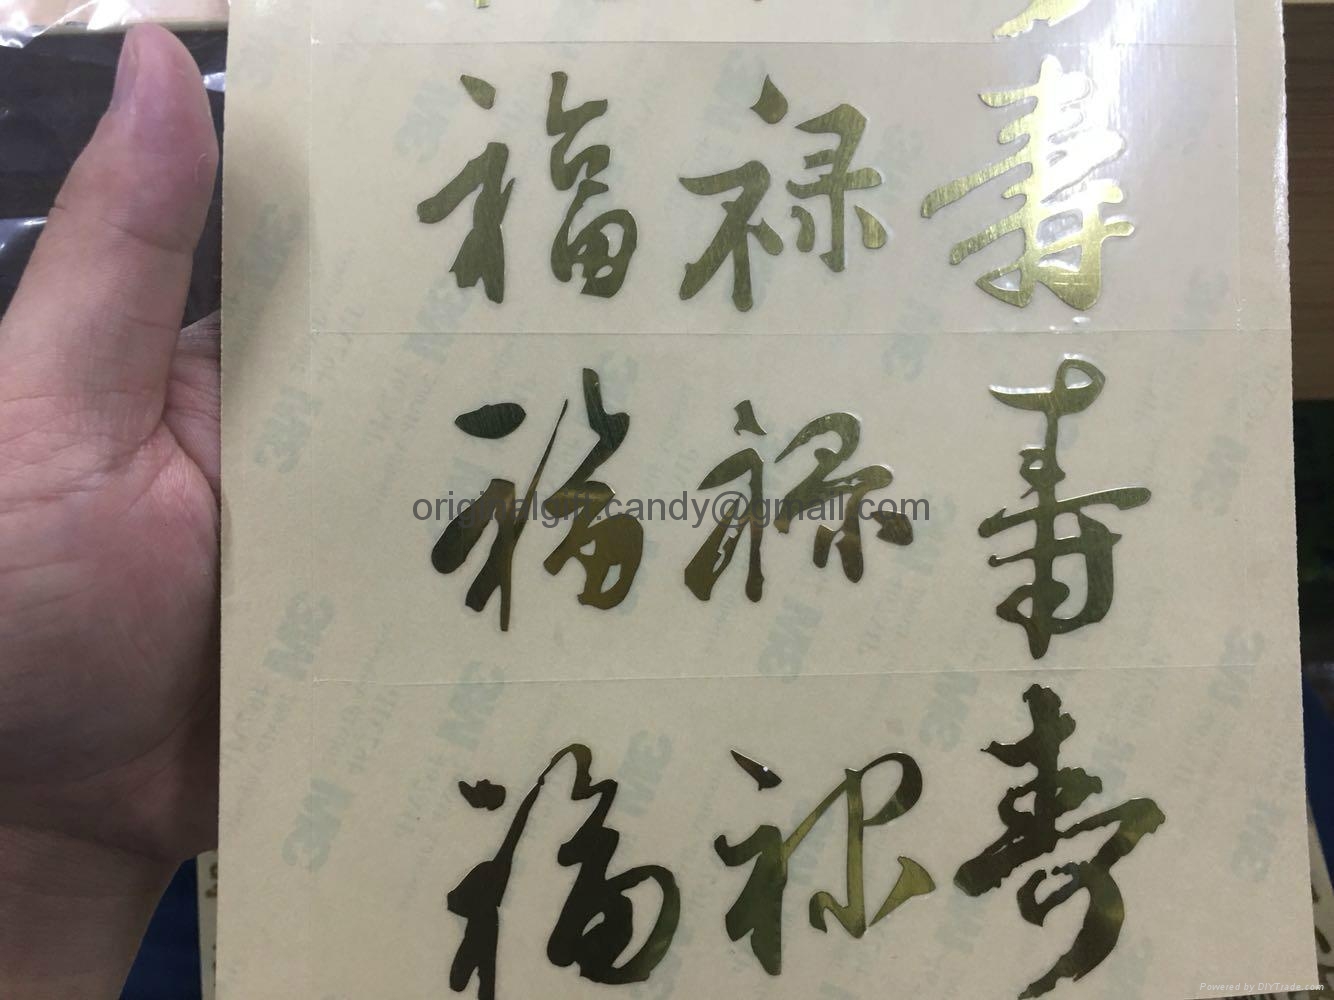 福禄寿
福禄寿
originalgift.candy@gmail.com
福禄寿
Powered by DIYTrade.com